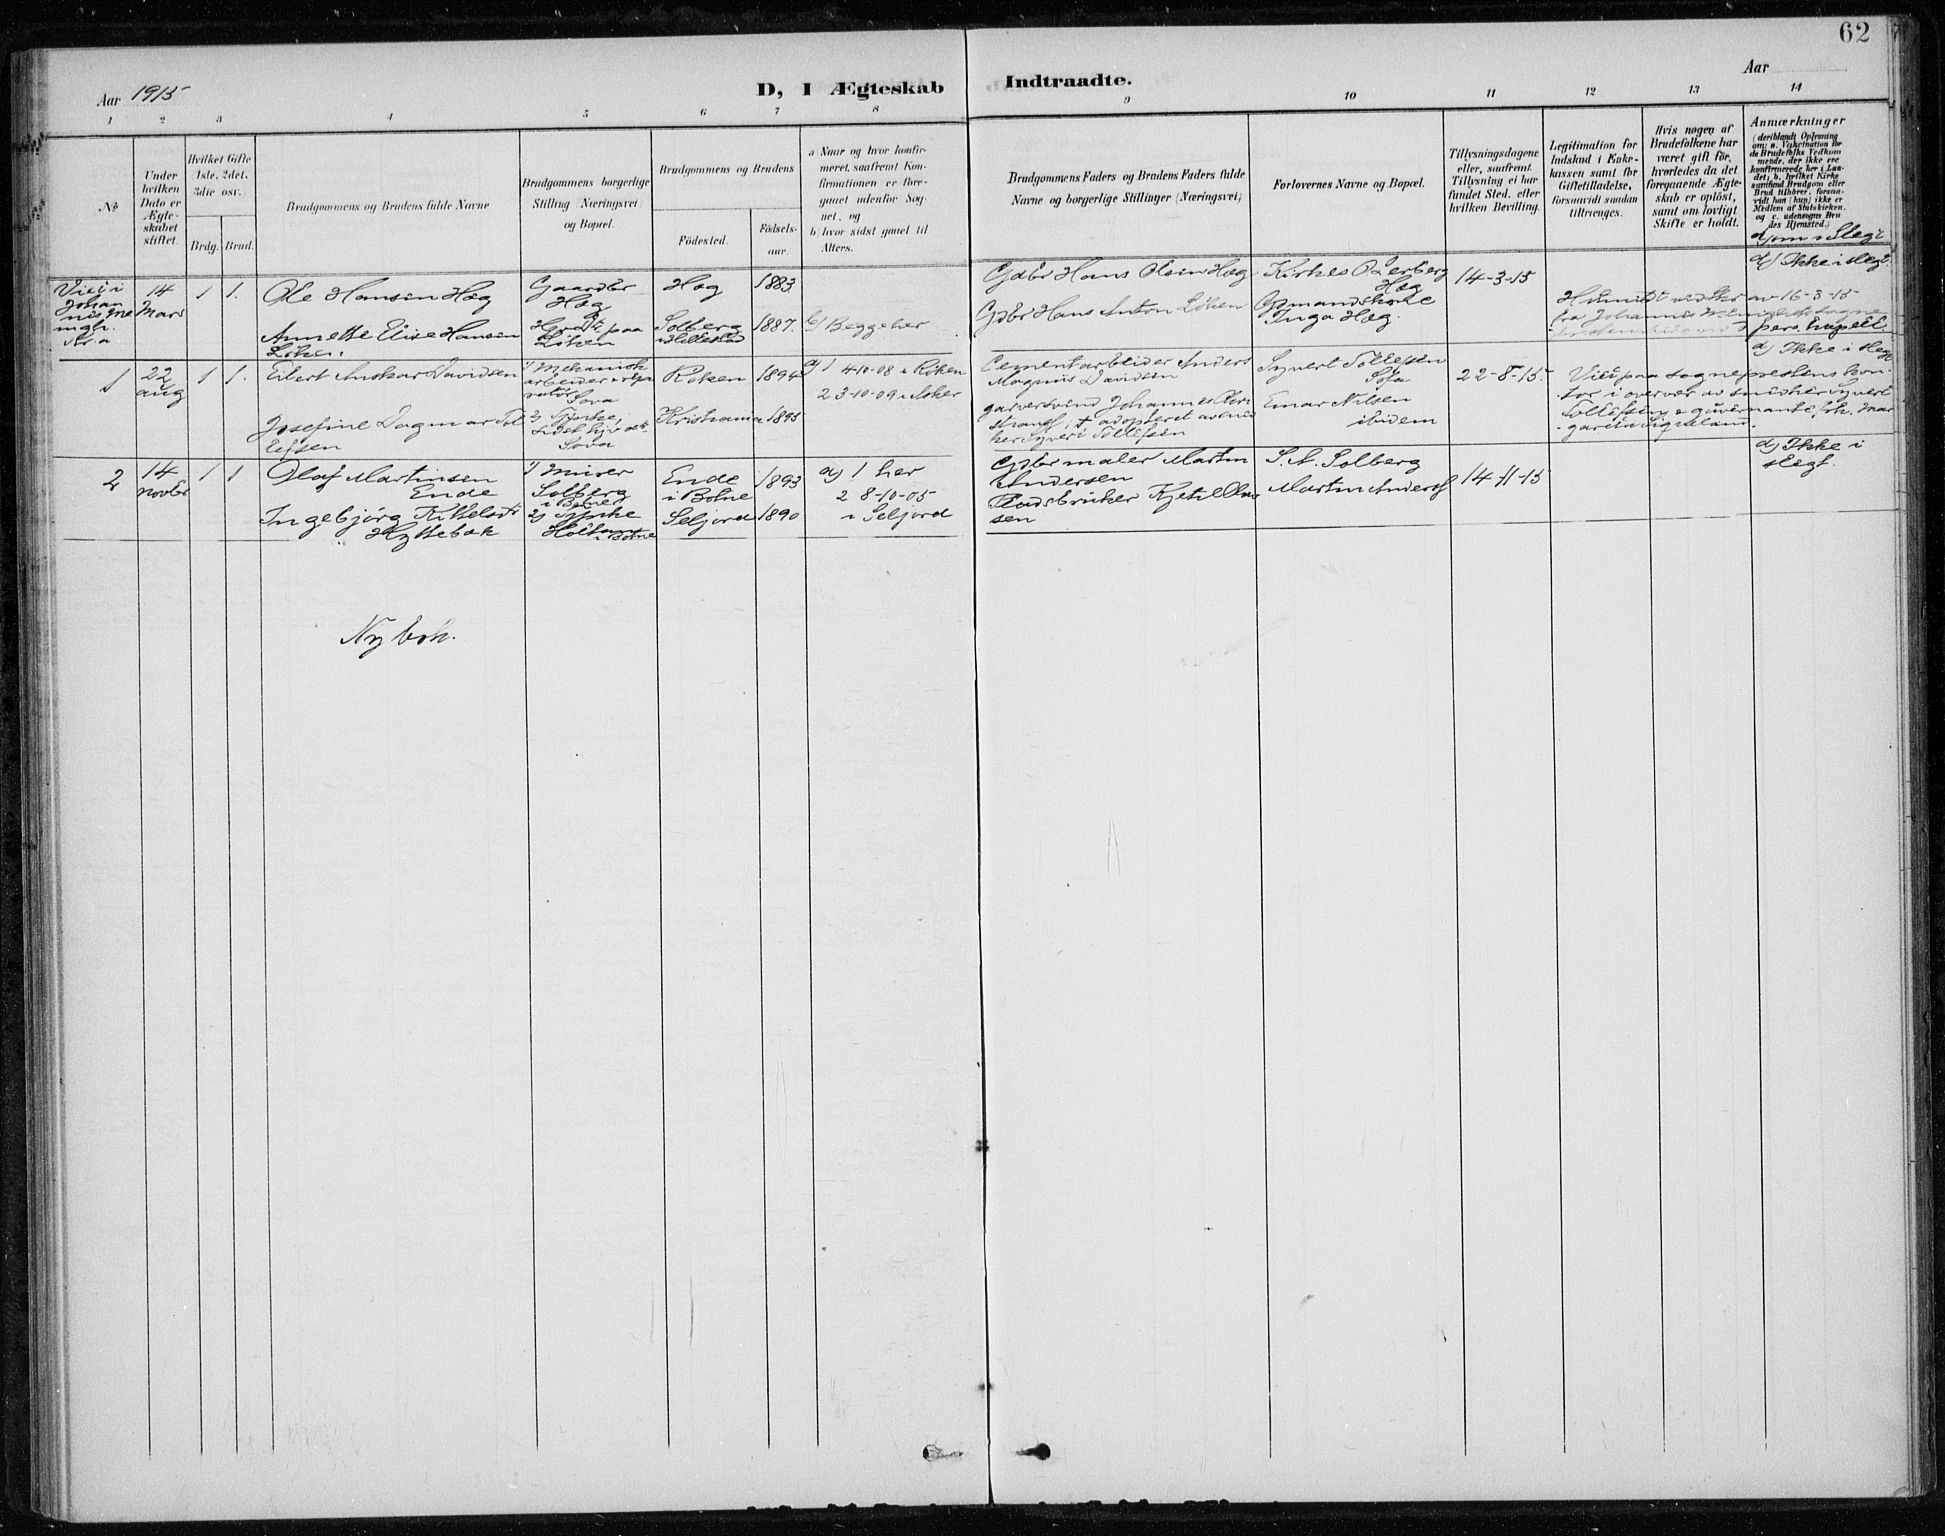 62
Aar 1915
D, I Ægteskab
Indtraadte.
Aar
1 2 3 4 5 6 7 8 9 10 11 12 13 14
No
Under
hvilken
Dato er
Ægte-
skabet
stiftet.
Hvilket Gifte
1ste, 2det,
3die osv.
Brdg. Brud.
Brudgommens og Brudens fulde Navne
Brudgommens borgerlige
Stilling (Næringsvei)
og Bopæl.
Brudgommens og Brudens
Födested.
Födsels-
aar.
a Naar og hvor konfir-
meret, saafremt Kon-
firmationen er fore-
gaaet udenfor Sog-
net, og
b hvor sidst gaaet til
Alters.
Brudgommens Faders og Brudens Faders fulde
Navne og borgerlige Stillinger (Næringsvei)
Forlovernes Navne og Bopæl.
Tillysningsdagene
eller, saafremt
Tillysning ei har
fundet Sted, efter
hvilken Bevilling.
Legitimation for
Indskud i Enke-
kassen samt for
Giftetilladelse,
forsaavidt saadan
tiltrænges.
Hvis nogen af
Brudefolkene har
været gift för,
hvorledes da det
foregaaende Ægte-
skab er oplöst,
samt om lovligt
Skifte er holdt.
Anmærkninger
(deriblandt Oplysning
om: a. Vakcination for
de Brudefolks Vedkom
mende, der ikke ere
konfirmerede her i Lan-
det; b. hvilket Kirke
samfund Brudgom eller
Brud tilhörer, forsaa-
vidt han (hun) ikke er
Medlem af Statskirken,
og c. udensogns Bru
des Hjemsted.)
d) om i Slegt
Viet i
Johan
nes me
nigh.
Kr.a
14
Mars
1 1.
Ole Hansen Hæg
Annette Elise Hansen
Løken.
Gaardbr
Hæg
paa
Løken
Hæg
Solberg
i Hillestad
1883
1887.
b) Begge her
Gdbr Hans Olsen Hæg
Gdbr Hans Anton Løken
Kirkes O Lerberg
Hæg
Gdmandskone
Inga Hæg.
14-3-15
av 16-3-15
fra Johannes Menigheds Sogne
pers. kapell.
d) Ikke i slegt.
1
22
aug
1 1.
Eilert Anskar Davidsen
Josefine Dagmar Tol
lefsen
1) Mekanisk
arbeider & repa
ratør
Sova
2) Tjeneste
Sova
Røken
Kristiania
1894
1895
a) 1 4-10-08 i Røken
2 3-10-09 i Asker
Cementarbeider Anders
Magnus Davidsen
garversvend Johannes
adopteret av
Syvert Tollefsen
Syvert Tollefsen
Sofa
Einar Nilsen
ibidem
22-8-15.
Viet paa sogneprestens kon-
tor i overvær av Syvert
Tollefsen & guvernante, frk. Mar
garetha Sigveland.
d) Ikke i slegt
2
14
novbr
1 1
Olaf Martinsen
Ende
Ingebjørg Kittelsdt
Hyttebak
1) Murer
Solberg
i Botne
2) Tjeneste
i Botne
Ende
i Botne
Seljord
1893
1890
a) 1 her
2 8-10-05
i Seljord
Gdbr maler Martin
Andersen
Pladsbruker Kjetil Olav
sen
S. A. Solberg
Martin Anders
14-11-15
d) Ikke i
slegt.
Ny bok.